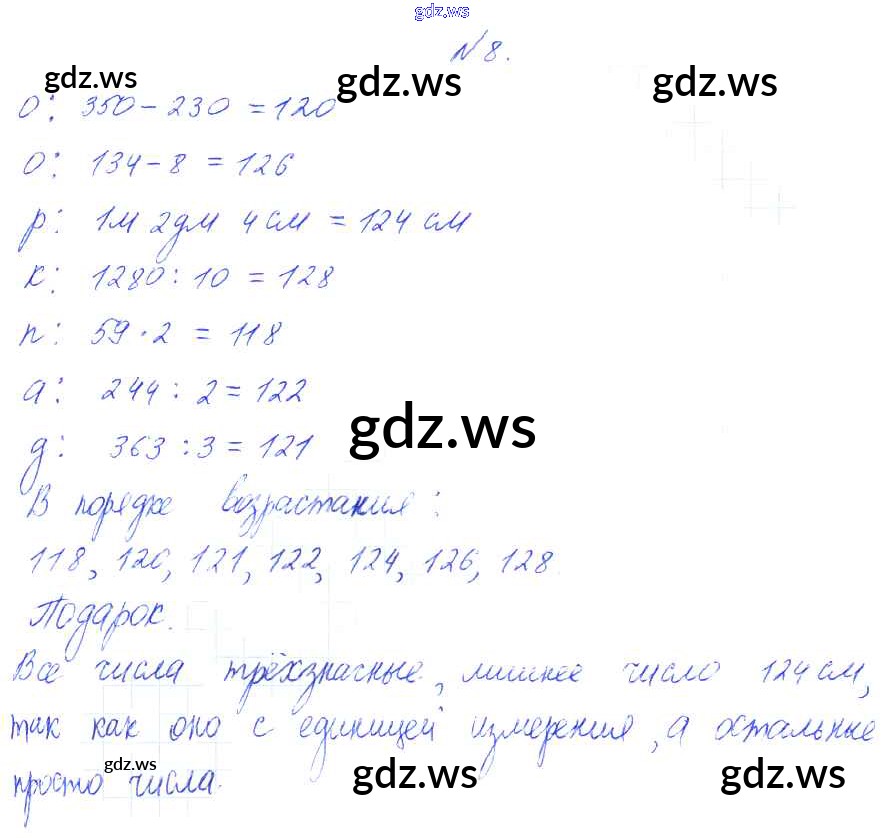 gdz.ws
№ 8.
gdz.ws gdz.ws gdz.ws
о: 350 - 230 = 120
о: 134 - 8 = 126
р: 1м 2дм 4 см = 124 см
к: 1280 : 10 = 128
п: 59 · 2 = 118
а: 244 : 2 = 122
gdz.ws
д: 363 : 3 = 121
В порядке возрастания:
118, 120, 121, 122, 124, 126, 128.
Подарок.
Все числа трёхзначные, лишнее число 124 см,
так как оно с единицей измерения, а остальные
просто числа.
gdz.ws gdz.ws gdz.ws